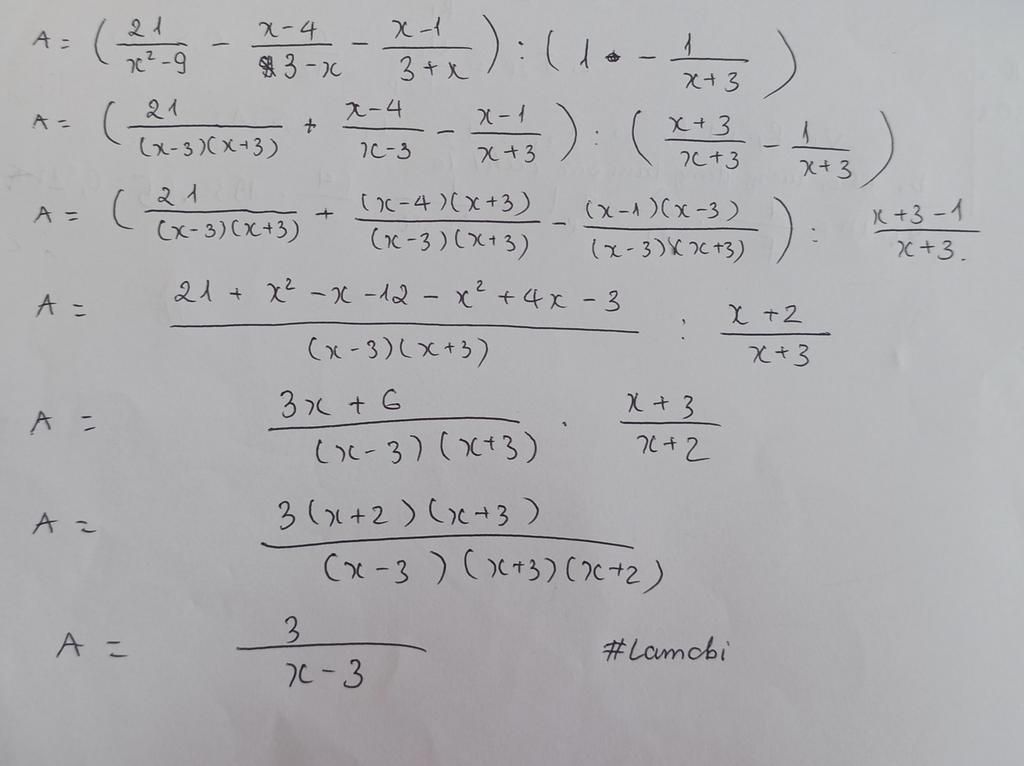 A = ( 21 / x² - 9 - x - 4 / 3 - x - x - 1 / 3 + x ) : ( 1 - 1 / x + 3 )
A = ( 21 / (x - 3)(x + 3) + x - 4 / x - 3 - x - 1 / x + 3 ) : ( x + 3 / x + 3 - 1 / x + 3 )
A = ( 21 / (x - 3)(x + 3) + (x - 4)(x + 3) / (x - 3)(x + 3) - (x - 1)(x - 3) / (x - 3)(x + 3) ) : x + 3 - 1 / x + 3.
A = 21 + x² - x - 12 - x² + 4x - 3 / (x - 3)(x + 3) : x + 2 / x + 3
A = 3x + 6 / (x - 3)(x + 3) . x + 3 / x + 2
A = 3(x + 2)(x + 3) / (x - 3)(x + 3)(x + 2)
A = 3 / x - 3 #Lamobi